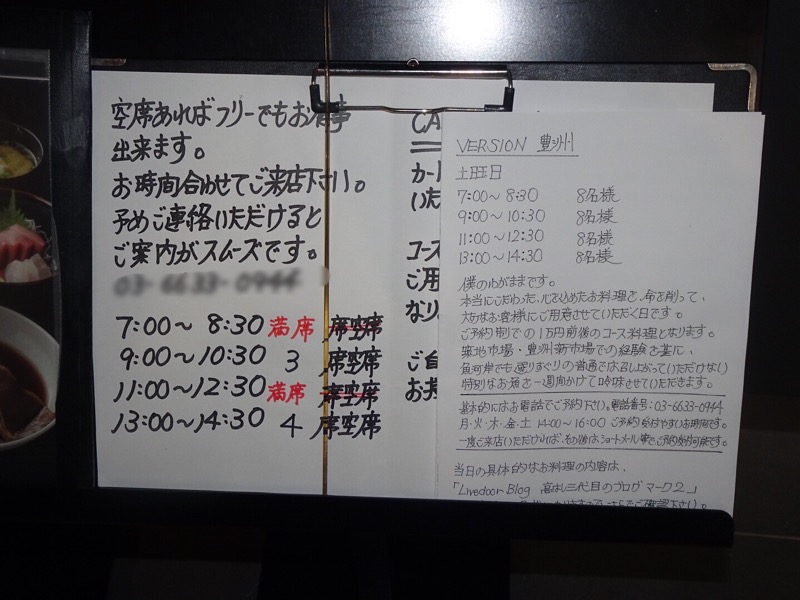 空席あればフリーでもお食事
出来ます。
お時間合わせてご来店下さい。
予めご連絡いただけると
ご案内がスムーズです。
03-6633-0944
7:00～ 8:30 満席 席空席
9:00～10:30 3 席空席
11:00～12:30 満席 席空席
13:00～14:30 4 席空席
CA
カー
いた
コース
ご用
なり
ご自
お持
VERSION 豊洲
土曜日
7:00～8:30 8名様
9:00～10:30 8名様
11:00～12:30 8名様
13:00～14:30 8名様
僕のわがままです。
本当にこだわった、心を込めたお料理を、命を削って、
大切なお客様にご用意させていただく日です。
ご予約制での1万円前後のコース料理となります。
築地市場・豊洲新市場での経験を基に、
魚河岸でも選りすぐりの普通では召し上がっていただけない
特別なお魚を一週間かけて吟味させていただきます。
基本的にはお電話でご予約下さい。電話番号:03-6633-0944
月・火・木・金・土 14:00～16:00 ご予約受付やすいお時間です。
一度ご来店いただければ、その後はショートメール等でご予約可能です。
当日の具体的なお料理の内容は、
「Livedoor Blog 高はし三代目のブログ マーク2」
ご確認下さい。